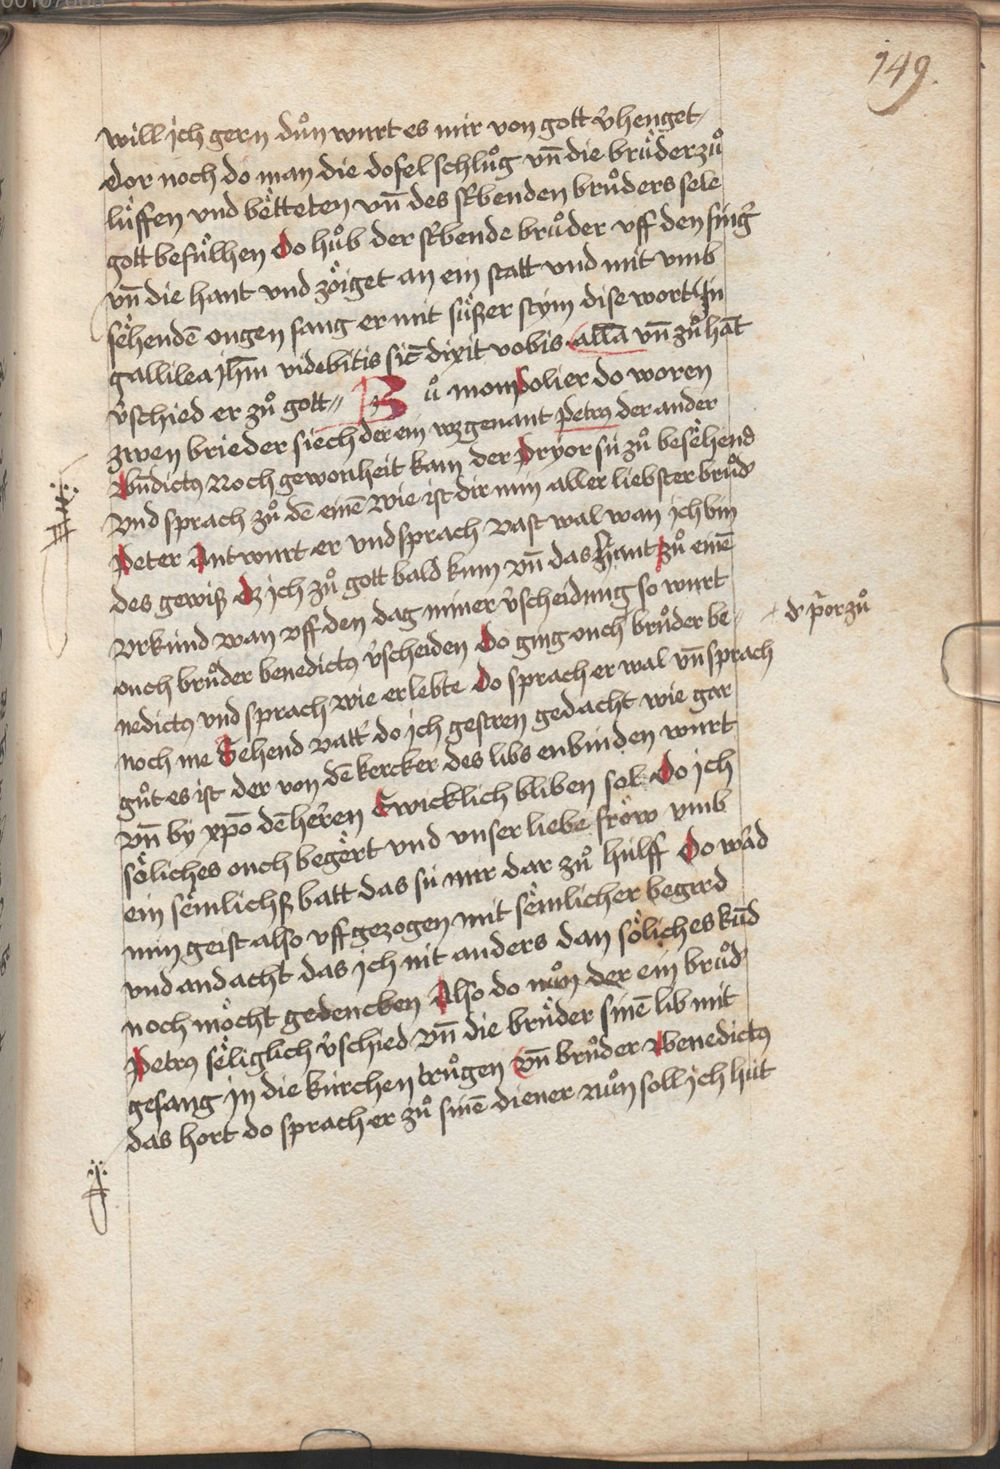 149.
will ich gern důn wurt es mir von gott v̉henget
Dor noch do man die dofel schlůg vn̄ die brüder zů
lüffen vnd bëtteten vn̄ des st̉benden brůders sele
gott befülhen Do hůb der st̉bende brůder vff den sing̉
vn̄ die hant vnd zöiget an ein statt vnd mit vmb
sëhendē ougen sang er mit süßer stym dise wort In
gallilea jhm̄ videbitis sic̄ dixit vobis alla vn̄ zů hāt
v̉schied er zů gott Zů mompolier do woren
zwen brieder siech der ein wz genant Petrus der ander
Bn̄dictꝰ Noch gewonheit kam der Pryor sü zů besëhend
vnd sprach zů dē einē wie ist dir min aller liebster brůd̉
Peter Antwurt er vnd sprach vast wal wan ich bin
des gewiß dz ich zů gott bald kum vn̄ das hant zů einē
vrkünd wan vff den dag miner v̉scheidung so wurt
ouch brůder benedictꝰ v̉scheiden Do ging ouch brůder be-
d̉ p̉or zů
nedictꝰ vnd sprach wie er lebte Do sprach er wal vn̄ sprach
noch me Sehend vatt̉ do ich gestren gedacht wie gar
gůt es ist der von dē kercker des libs enbinden wurt
vn̄ by xp̄o dē heren Ewicklich bliben sol Do ich
söliches ouch begërt vnd vnser liebe fröw vmb
ein sëmlichß batt das sü mir dar zů hülff Do w̉d
min geist also vff gezogen mit sëmlicher begird
vnd andacht das ich nit anders dan söliches kūd
noch möcht gedencken Also do nůn der ein brůd̉
Petrꝰ sëliglich v̉schied vn̄ die brüder sinē lib mit
gesang in die kirchen trůgen vn̄ brůder Benedictꝰ
das hort do sprach er zů sinē diener nůn soll ich hüt